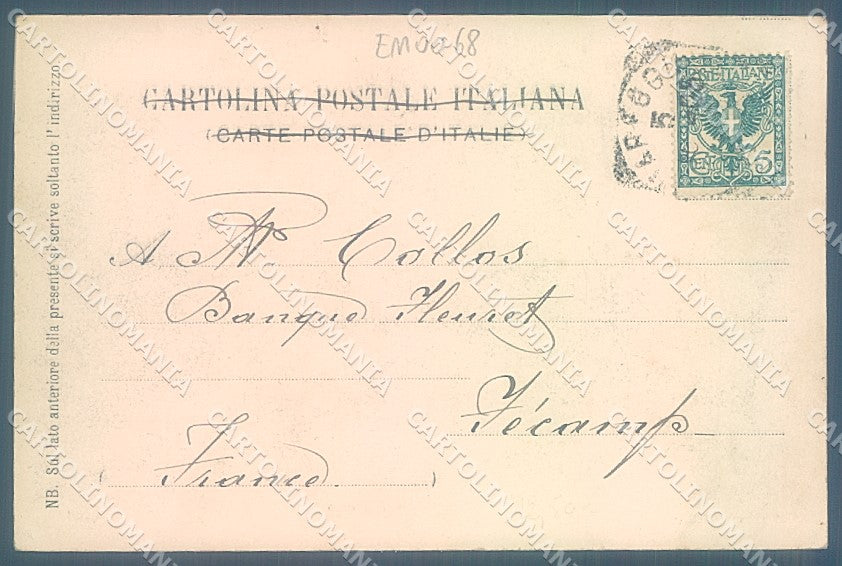 EM0268
CARTOLINA POSTALE ITALIANA
(CARTE POSTALE D'ITALIE)
POSTE·ITALIANE
CENT 5
A Collos
Banque Fleuret
Fécamp
(France.)
NB. Sul lato anteriore della presente si scrive soltanto l'indirizzo
CARTOLINOMANIA